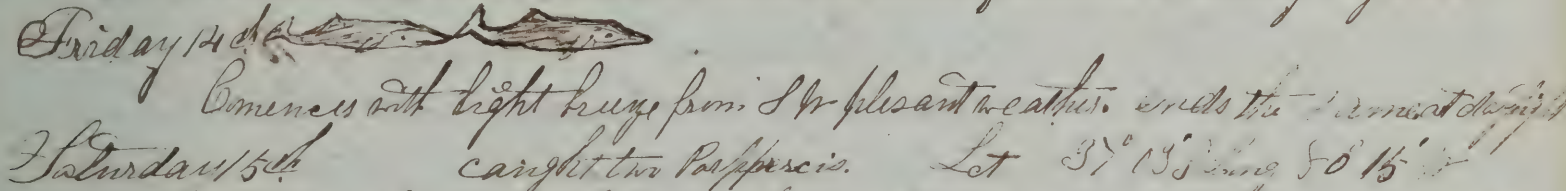 Friday 14th
Comences with light breeze from S W plesant weather. ends the
Saturday 15th caught two Porpercis. Lat 37° 13' Long 50° 15'